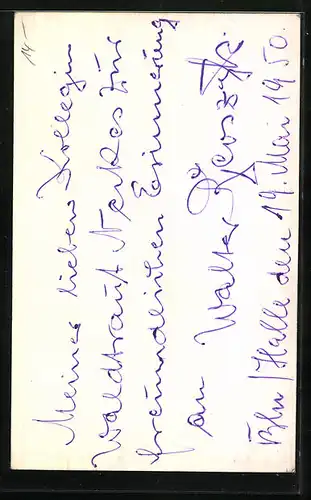 Meiner lieben Kollegin
Waldtraut zur
freundlichen Erinnerung
an Walter
Bln / Halle den 19. Mai 1950.
14.-